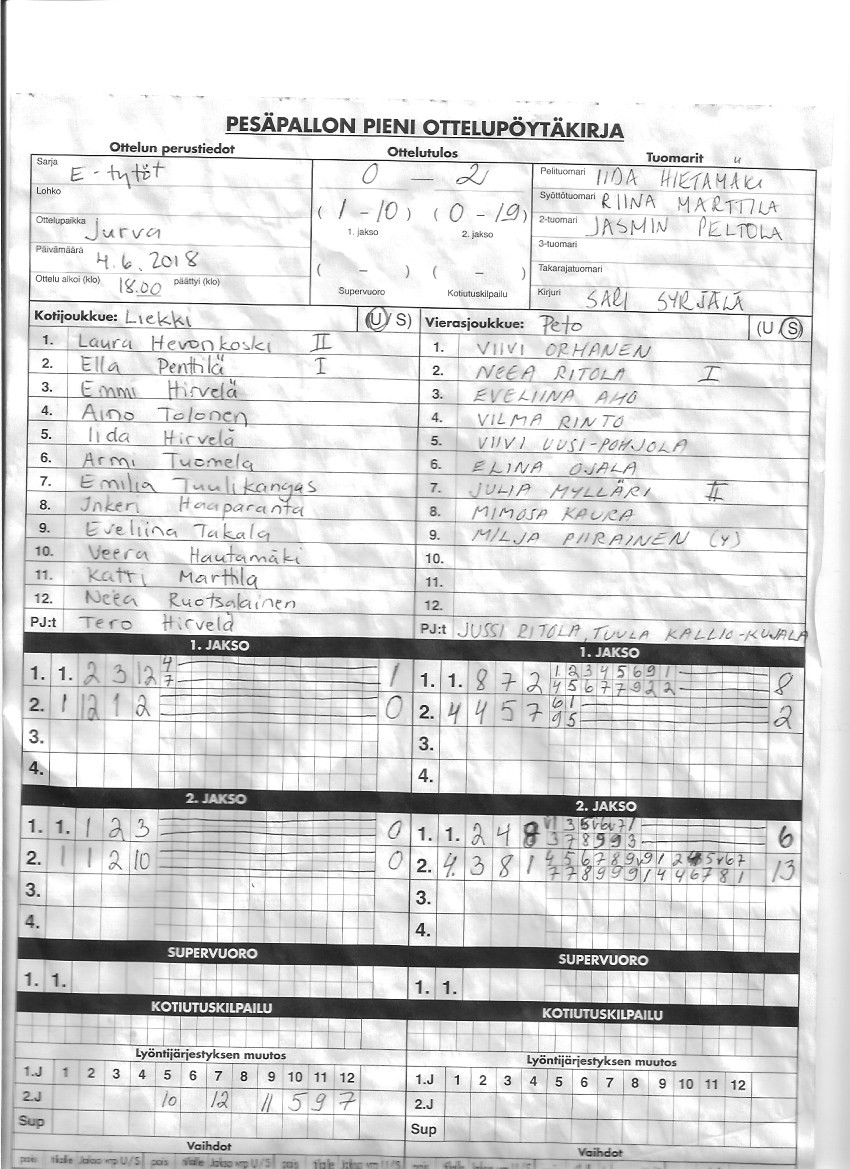 PESÄPALLON PIENI OTTELUPÖYTÄKIRJA
Ottelun perustiedot
Sarja E-tytöt
Lohko
Ottelupaikka Jurva
Päivämäärä 4.6.2018
Ottelu alkoi (klo) 18.00 päättyi (klo)
Ottelutulos
0 - 2
(1-10) (0-19)
1. jakso 2. jakso
( - ) ( - )
Supervuoro Kotiutuskilpailu
Tuomarit
Pelituomari IIDA HIETAMÄKI
Syöttötuomari RIINA MARTTILA
2-tuomari JASMIN PELTOLA
3-tuomari
Takarajatuomari
Kirjuri SARI SYRJÄLÄ
Kotijoukkue: Liekki (U/S)
1. Laura Hevonkoski II
2. Ella Penttilä I
3. Emmi Hirvelä
4. Aino Tolonen
5. Iida Hirvelä
6. Armi Tuomela
7. Emilia Tuulikangas
8. Inkeri Haaparanta
9. Eveliina Takala
10. Veera Hautamäki
11. Katri Marttila
12. Neea Ruotsalainen
PJ:t Tero Hirvelä
Vierasjoukkue: Peto (U/S)
1. VIIVI ORHANEN
2. NEEA RITOLA I
3. EVELIINA AHO
4. VILMA RINTO
5. VIIVI UUSI-POHJOLA
6. ELINA OJALA
7. JULIA MYLLÄRI II
8. MIMOSA KAURA
9. MILJA PIIRAINEN (Y)
10.
11.
12.
PJ:t JUSSI RITOLA, TUULA KALLIO-KUJALA
1. JAKSO
1. 1. 2 3 12 4 7 1
2. 1 12 1 2 0
3.
4.
1. JAKSO
1. 1. 8 7 2 1 2 3 4 5 6 9 1 8
4 5 6 7 7 9 2 2
2. 4 4 5 7 6 1 2
9 5
3.
4.
2. JAKSO
1. 1. 1 2 3 0
2. 1 1 2 10 0
3.
4.
2. JAKSO
1. 1. 2 4 8 6
3 7 8 9 9 3
2. 4. 3 8 1 13
7 7 8 9 9 9 1 4 4 6 7 8 1
3.
4.
SUPERVUORO
1. 1.
SUPERVUORO
1. 1.
KOTIUTUSKILPAILU
KOTIUTUSKILPAILU
Lyöntijärjestyksen muutos
1.J 1 2 3 4 5 6 7 8 9 10 11 12
2.J 10 12 11 5 9 7
Sup
Lyöntijärjestyksen muutos
1.J 1 2 3 4 5 6 7 8 9 10 11 12
2.J
Sup
Vaihdot
Vaihdot